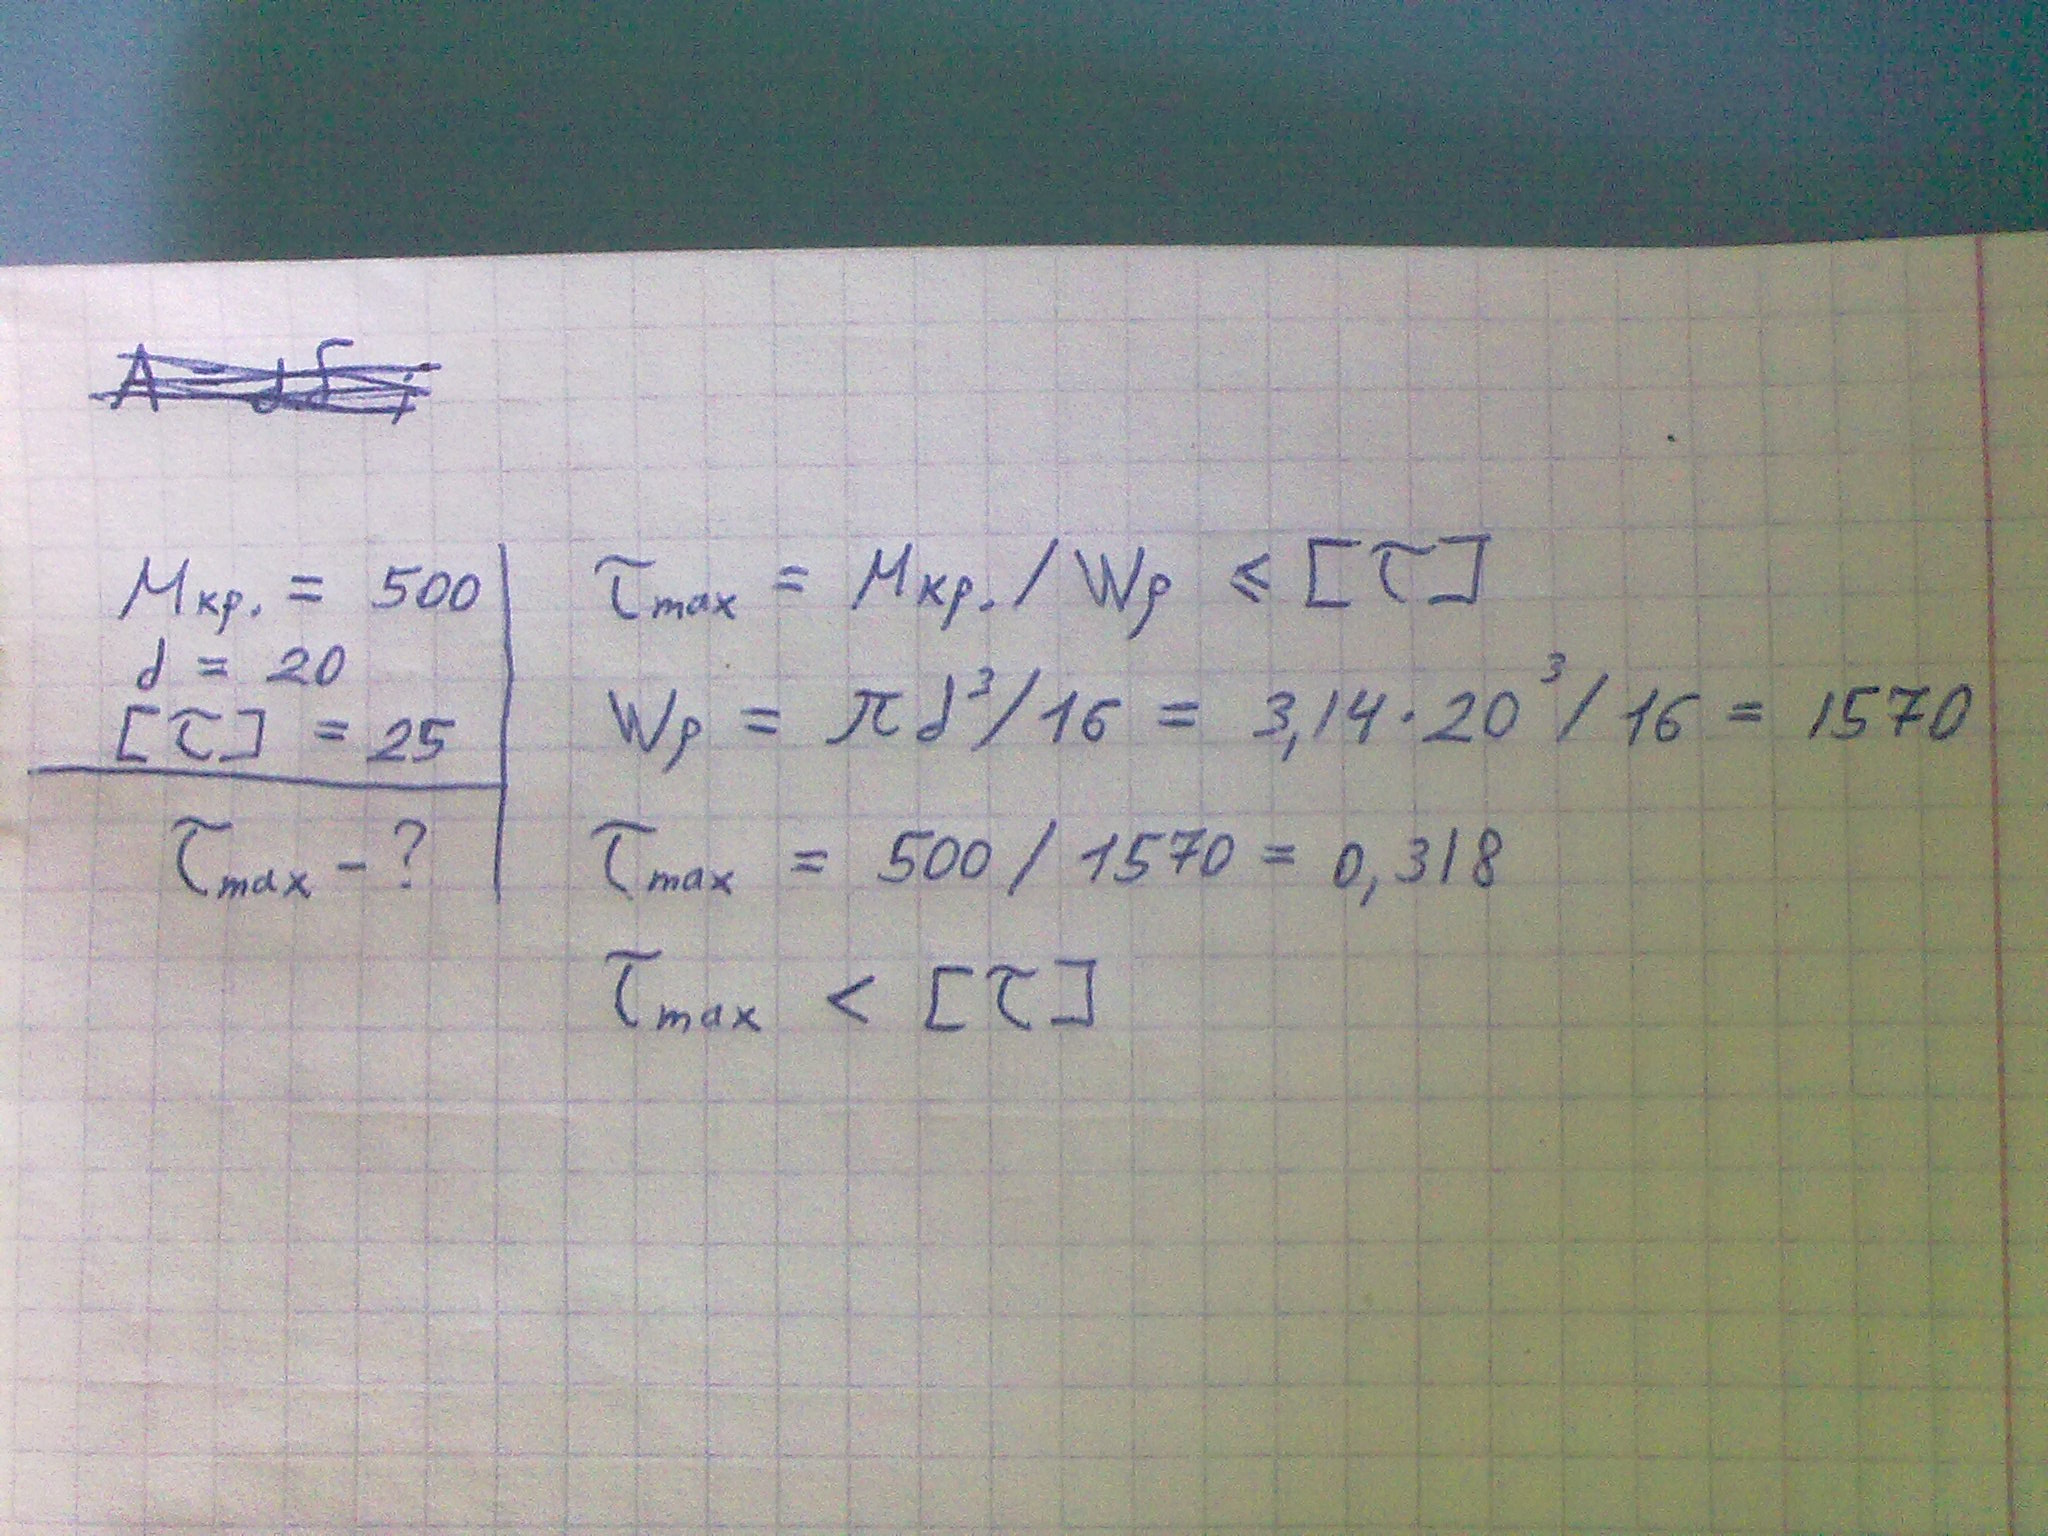 Mкр. = 500
d = 20
[τ] = 25
τmax - ?
τmax = Mкр. / Wp ⩽ [τ]
Wp = πd³/16 = 3,14 · 20³ / 16 = 1570
τmax = 500 / 1570 = 0,318
τmax < [τ]